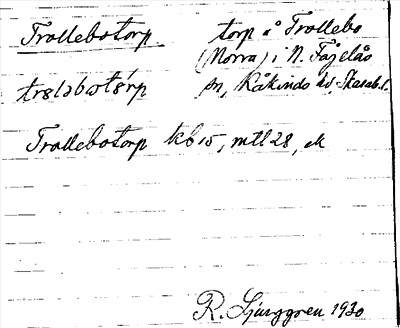 Trollebotorp. torp å Trollebo
(Norra) i N. Fågelås
trɷləbɷtɷ́rp sn, Kåkinds hd, Skarab. l.
Trollebotorp kb 15, mtl 28, ek
R. Ljunggren 1930